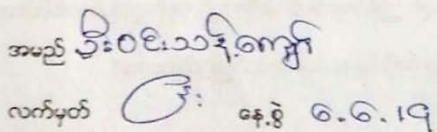 အမည် ဦးဝင်းသန့်ကျော်
လက်မှတ် နေ့စွဲ ၆.၆.၁၄